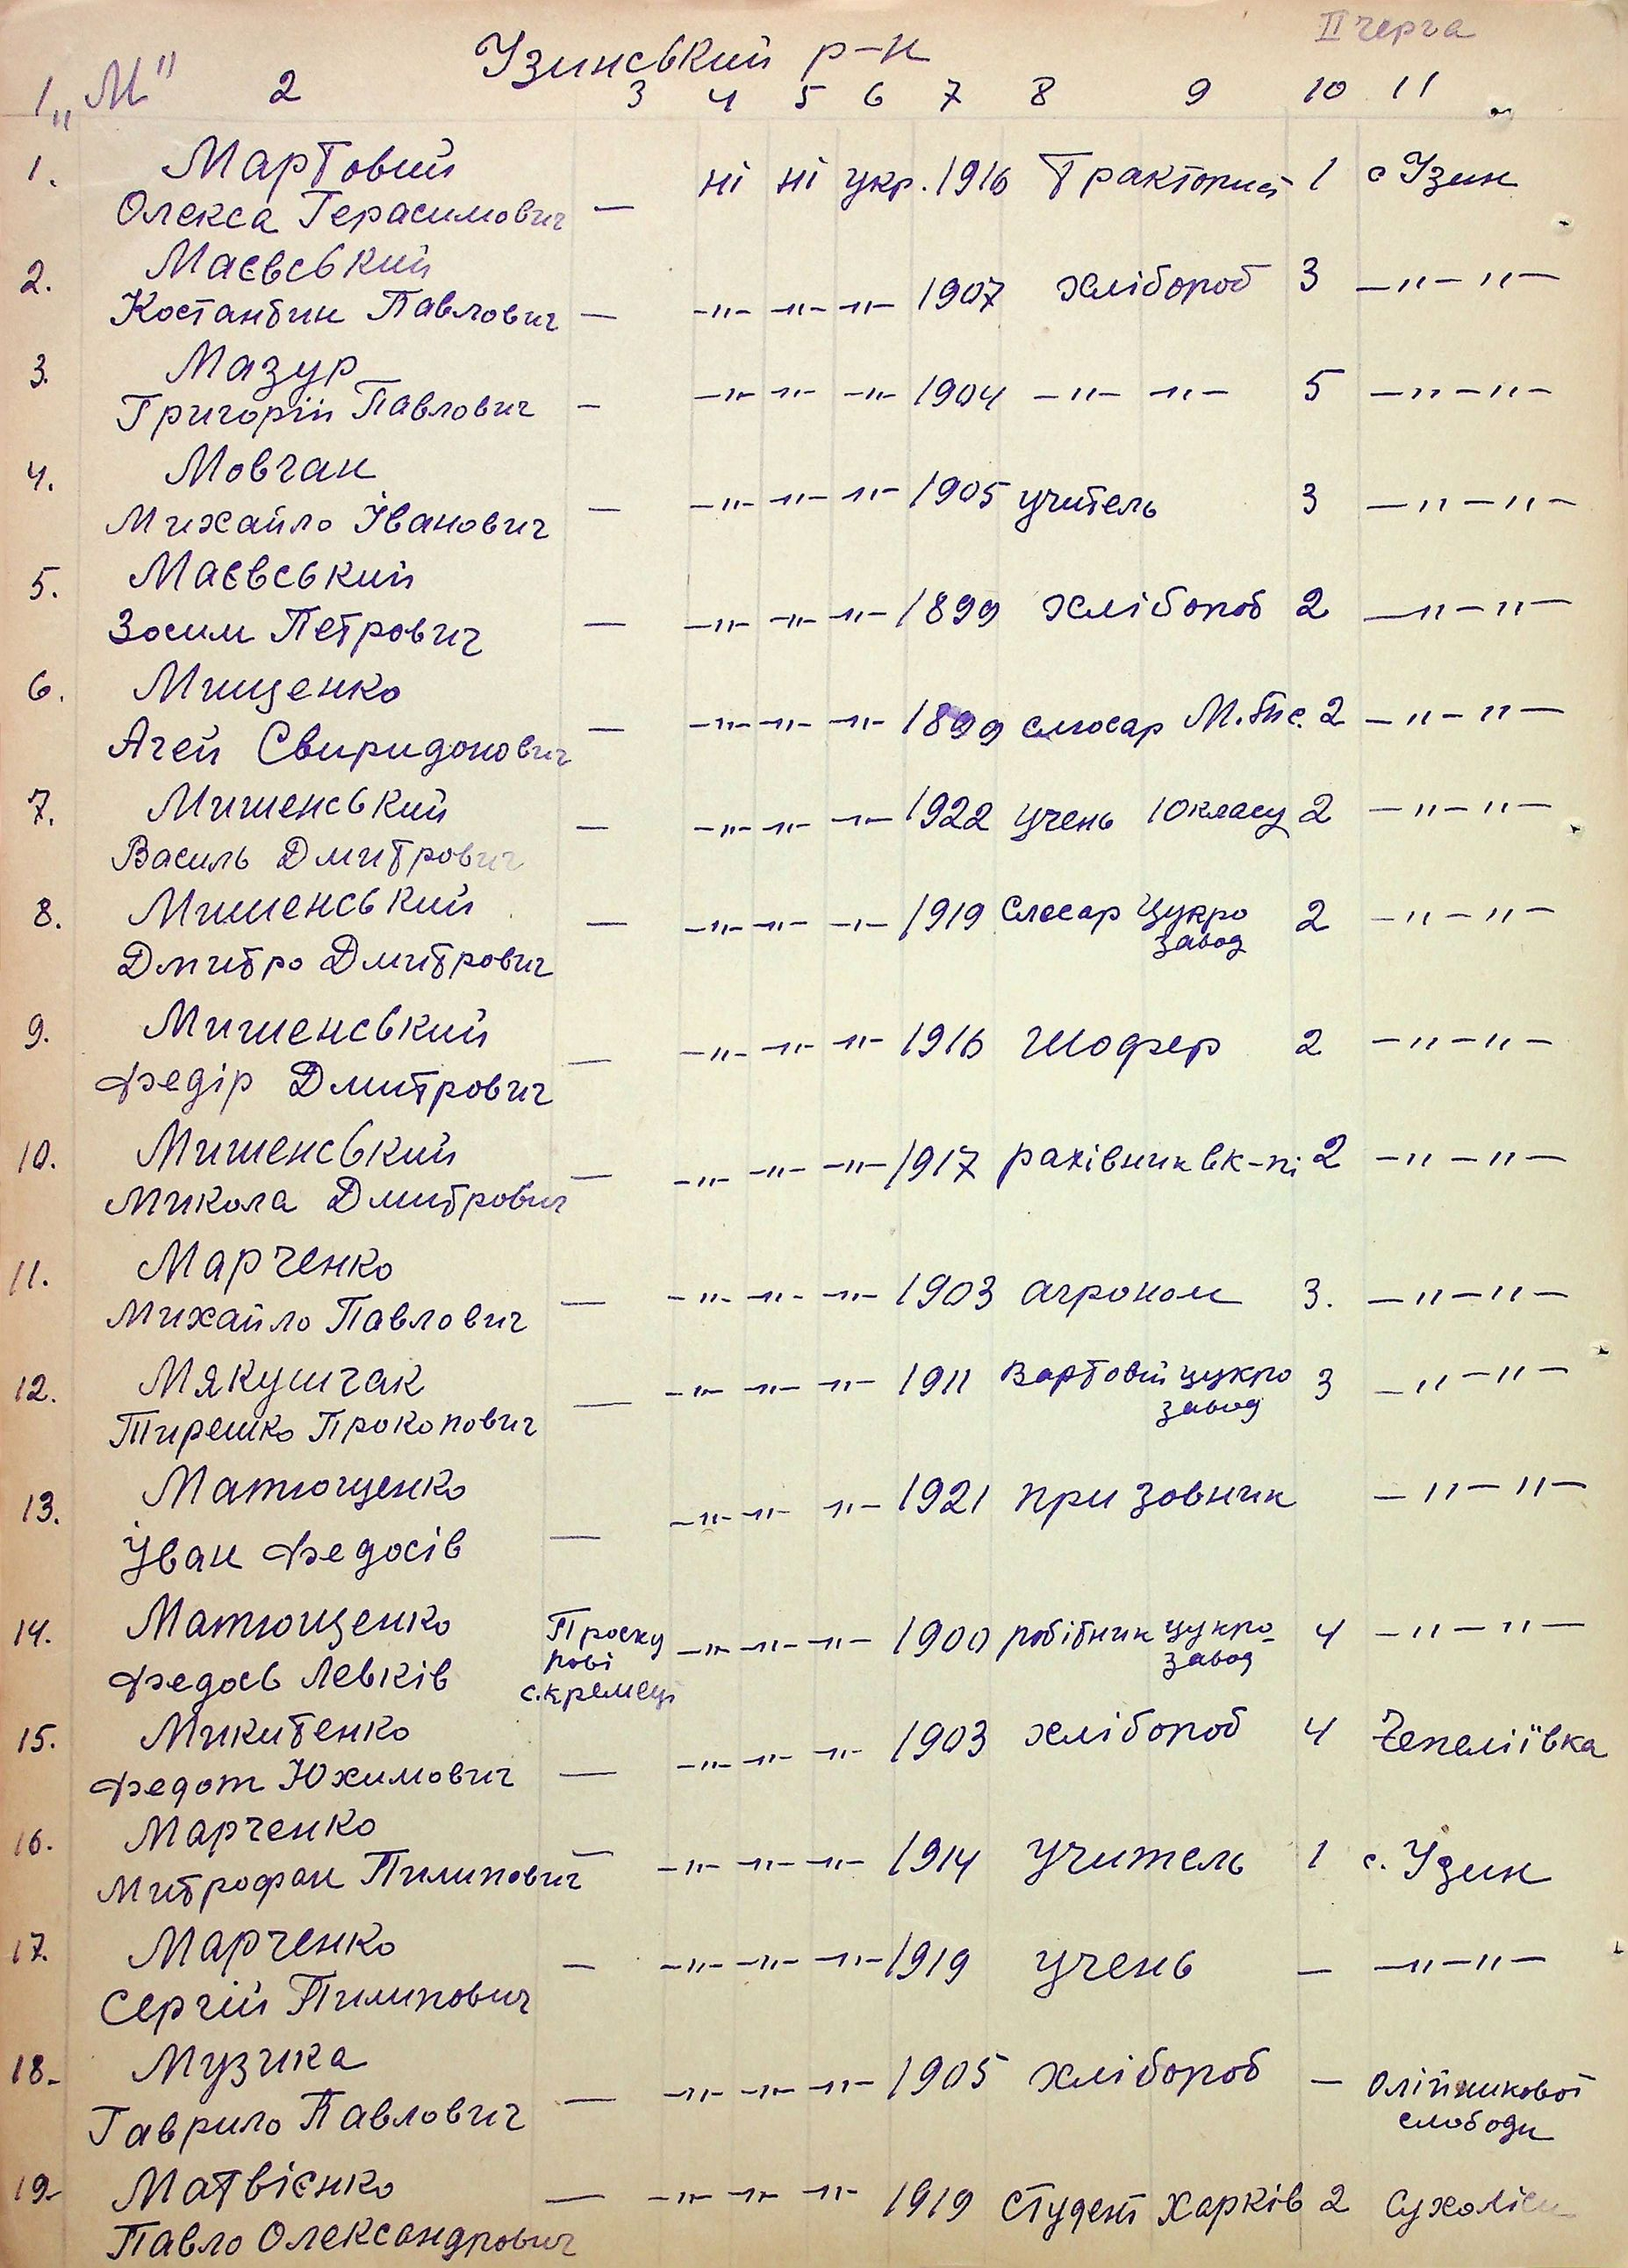 II черга
Узинський р-н
1 „М" 2 3 4 5 6 7 8 9 10 11
1. Мартовий
Олекса Герасимович — ні ні укр. 1916 Тракторист 1 с Узин
2. Маєвський
Костантин Павлович — -"- -"- -"- 1907 хлібороб 3 -"-"-
3. Мазур
Григорій Павлович — -"- -"- -"- 1904 -"- -"- 5 -"-"-
4. Мовчан
Михайло Іванович — -"- -"- -"- 1905 учитель 3 -"-"-
5. Маєвський
Зосим Петрович — -"- -"- -"- 1899 хлібороб 2 -"-"-
6. Мищенко
Агей Свиридонович — -"- -"- -"- 1899 слюсар М.т.с. 2 -"-"-
7. Мишенський
Василь Дмитрович — -"- -"- -"- 1922 учень 10 класу 2 -"-"-
8. Мишенський
Дмитро Дмитрович — -"- -"- -"- 1919 Слесар Цукро 2 -"-"-
завод
9. Мишенський
Федір Дмитрович — -"- -"- -"- 1916 шофер 2 -"-"-
10. Мишенський
Микола Дмитрович — -"- -"- -"- 1917 рахівник вк-пі 2 -"-"-
11. Марченко
Михайло Павлович — -"- -"- -"- 1903 агроном 3. -"-"-
12. Мякушчак
Тирешко Прокопович — -"- -"- -"- 1911 Вартовий цукро 3 -"-"-
завод
13. Матющенко
Іван Федосів — -"- -"- -"- 1921 призовник -"-"-
14. Матющенко
Федось Левків
Проску
рові
с.кремец
-"- -"- -"- 1900 робітник цукро- 4 -"-"-
завод
15. Микитенко
Федот Юхимович — -"- -"- -"- 1903 хлібороб 4 Чепеліївка
16. Марченко
Митрофан Пилипович — -"- -"- -"- 1914 учитель 1 с. Узин
17. Марченко
Сергій Пилипович — -"- -"- -"- 1919 учень — -"-"-
18. Музика
Гаврило Павлович — -"- -"- -"- 1905 хлібороб — Олійникової
слободи
19. Матвієнко
Павло Олександрович — -"- -"- -"- 1919 студент Харків 2 Сухоліси